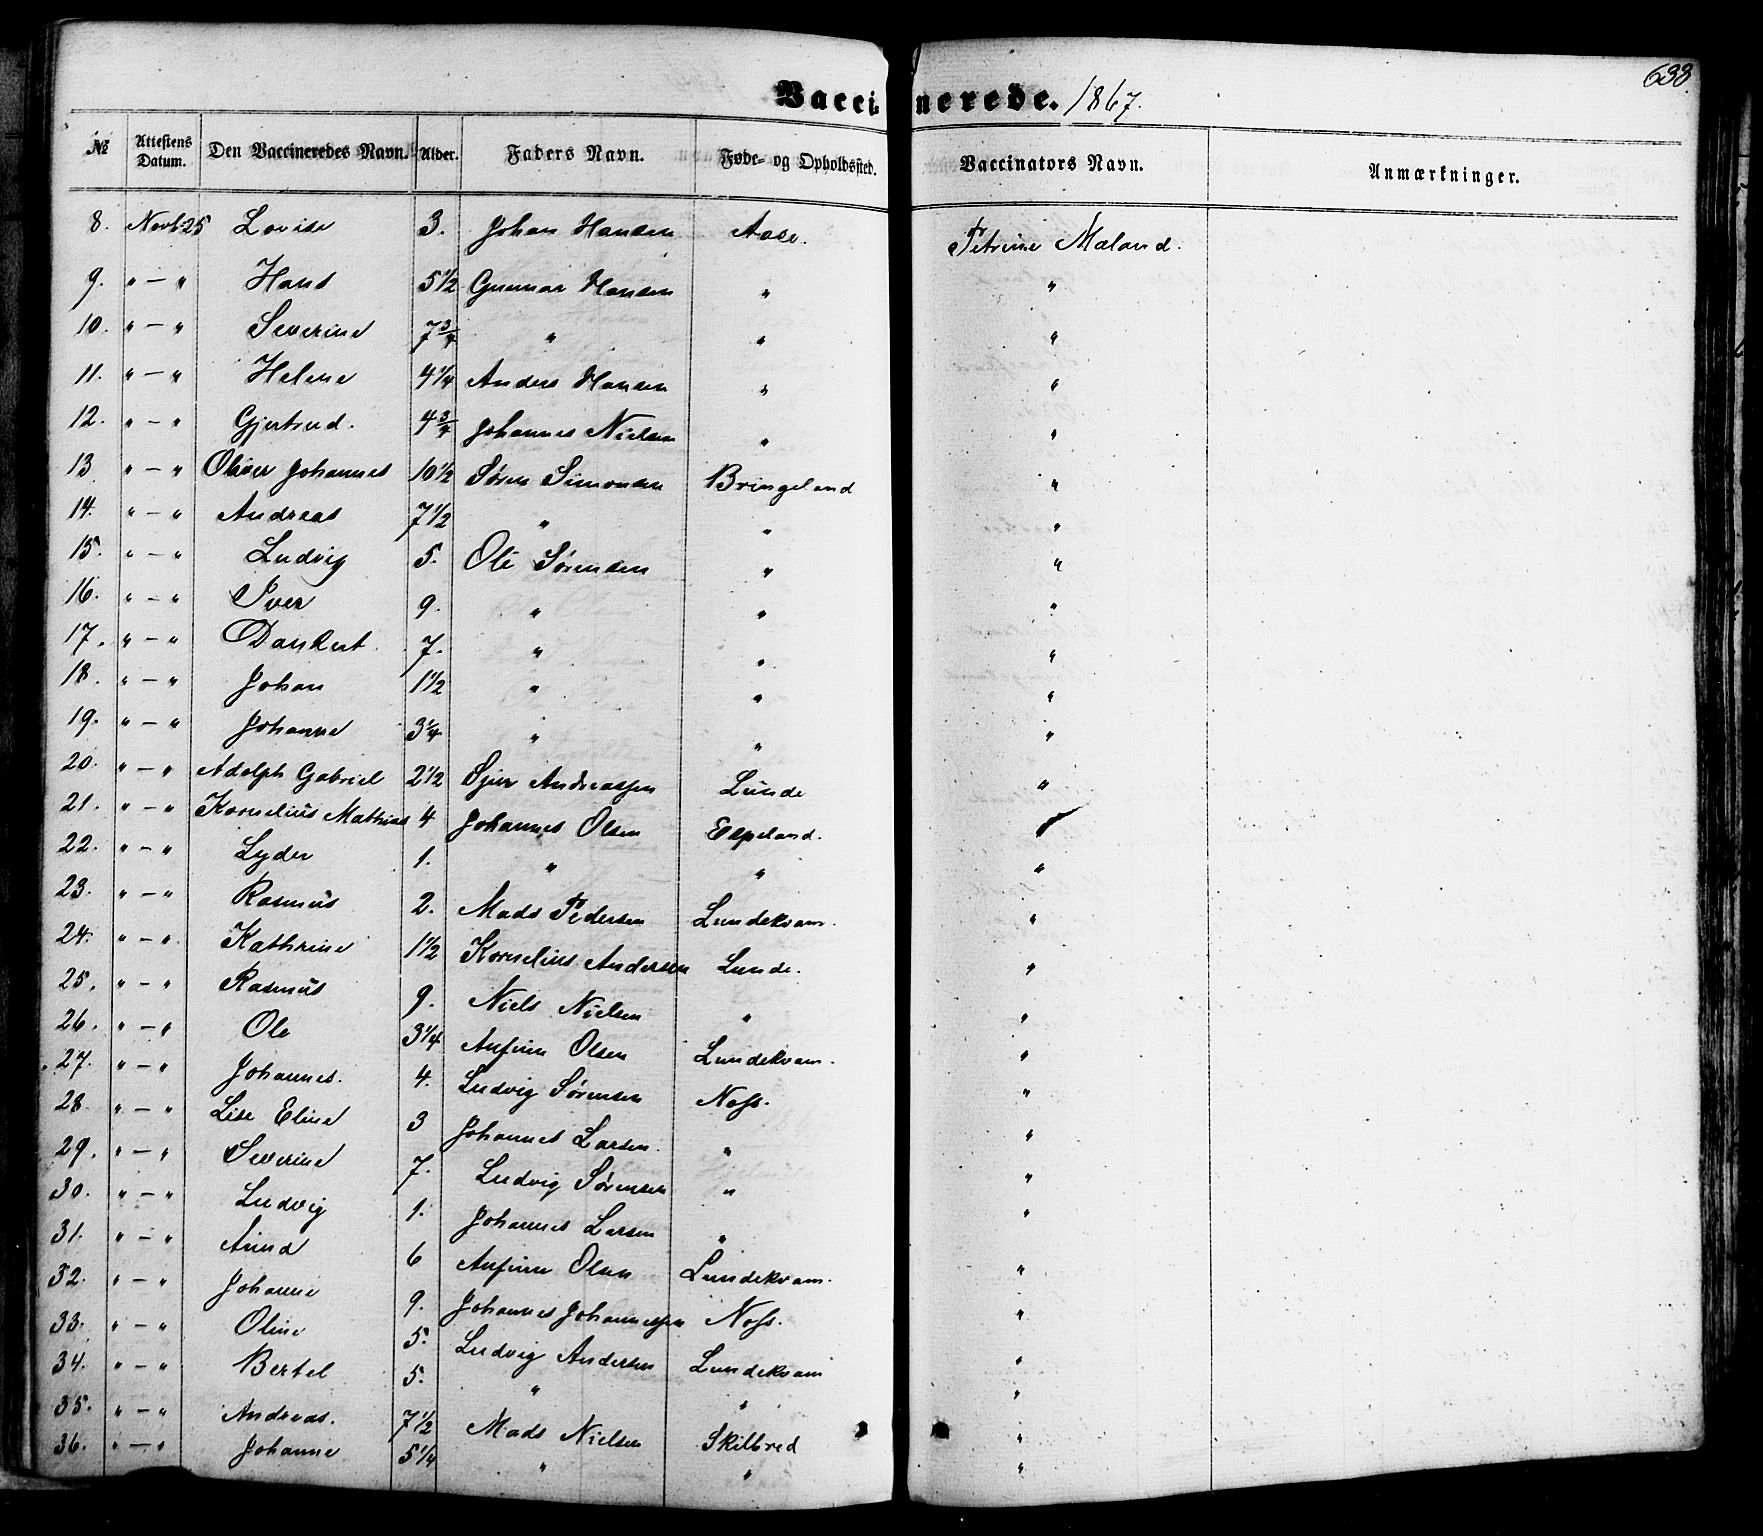 638.
Vaccinerede. 1867.
№ Attestens Datum. Den Vaccineredes Navn. Alder. Faders Navn. Føde- og Opholdssted. Vaccinators Navn. Anmærkninger.
8. Novb. 25 Lovise 3. Johan Hansen Aase. Petrine Mæland.
9. " — " Hans 5 1/2 Gunnar Hansen " "
10. " — " Severine 7 3/4 " " "
11. " — " Helene 4 1/4 Anders Hansen " "
12. " — " Gjertrud. 4 3/4 Johannes Nielsen " "
13 " — " Oliver Johannes 10 1/2 Søren Simonsen Bringeland "
14. " — " Andreas 7 1/2 " " "
15. " — " Ludvig 5. Ole Sørensen " "
16. " — " Iver 9. " " "
17. " — " Dankert. 7. " " "
18. " — " Johan 1 1/2 " " "
19. " — " Johanne 3 1/4 " " "
20. " — " Adolph Gabriel 2 1/2 Sjur Andreassen Lunde "
21. " — " Kornelius Mathias 4 Johannes Olsen Espeland. "
22. " — " Lyder 1. " " "
23. " — " Rasmus 2. Mads Pedersen Lundekvam. "
24. " — " Kathrine 1 1/2 Kornelius Andersen Lunde. "
25. " — " Rasmus 9. Niels Nielsen " "
26. " — " Ole 3 1/4 Anfinn Olsen Lundekvam. "
27. " — " Johannes. 4. Ludvig Sørensen Noss. "
28. " — " Lise Eline 3 Johannes Larsen. " "
29. " — " Severine 7. Ludvig Sørensen " "
30. " — " Ludvig 1. Johannes Larsen " "
31. " — " 6 Anfinn Olsen Lundekvam. "
32. " — " Johanne 9. Johannes Johannessen Noss. "
33. " — " Oline 5. Ludvig Andersen Lundekvam "
34. " — " Bertel 5. " " "
35. " — " Andreas. 7 1/2 Mads Nielsen Skilbred "
36. " — " Johanne 5 1/4 " " "